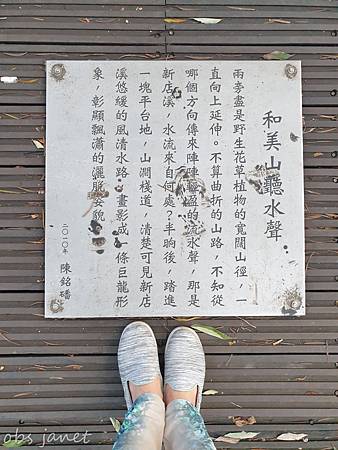 和美山聽水聲
兩旁盡是野生花草植物的寬闊山徑,一
直向上延伸。不算曲折的山路,不知從
哪個方向傳來陣陣輕盈的流水聲,那是
新店溪,水流來自何處?半晌後,踏進
一塊平台地,山澗棧道,清楚可見新店
溪悠緩的風清水路,畫影成一條巨龍形
象,彰顯飄瀟的灑脫姿貌
二〇一〇年 陳銘磻
obs janet